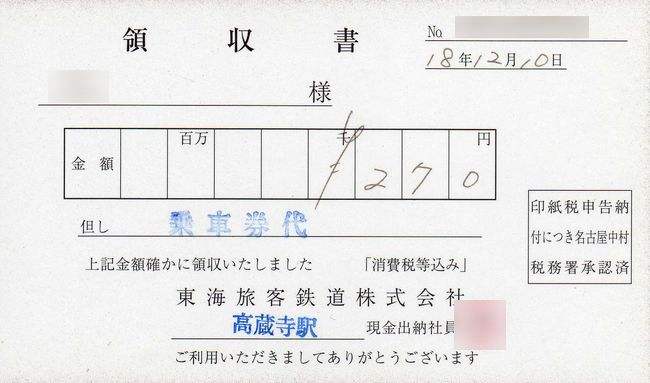 領収書
No
18年12月10日
様
金額 百万 千 円
¥270
但し 乗車券代
上記金額確かに領収いたしました 「消費税等込み」
東海旅客鉄道株式会社
高蔵寺駅 現金出納社員
ご利用いただきましてありがとうございます
印紙税申告納
付につき名古屋中村
税務署承認済